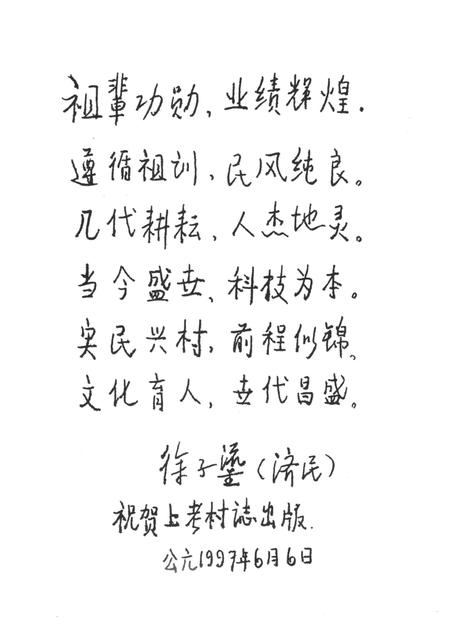 祖輩功勋、业绩辉煌.
遵循祖训、民风纯良。
几代耕耘、人杰地灵。
当今盛世、科技为本。
实民兴村,前程似锦、
文化育人,世代昌盛。
徐子鎏(济民)
祝贺上考村誌出版.
公元1997年6月6日